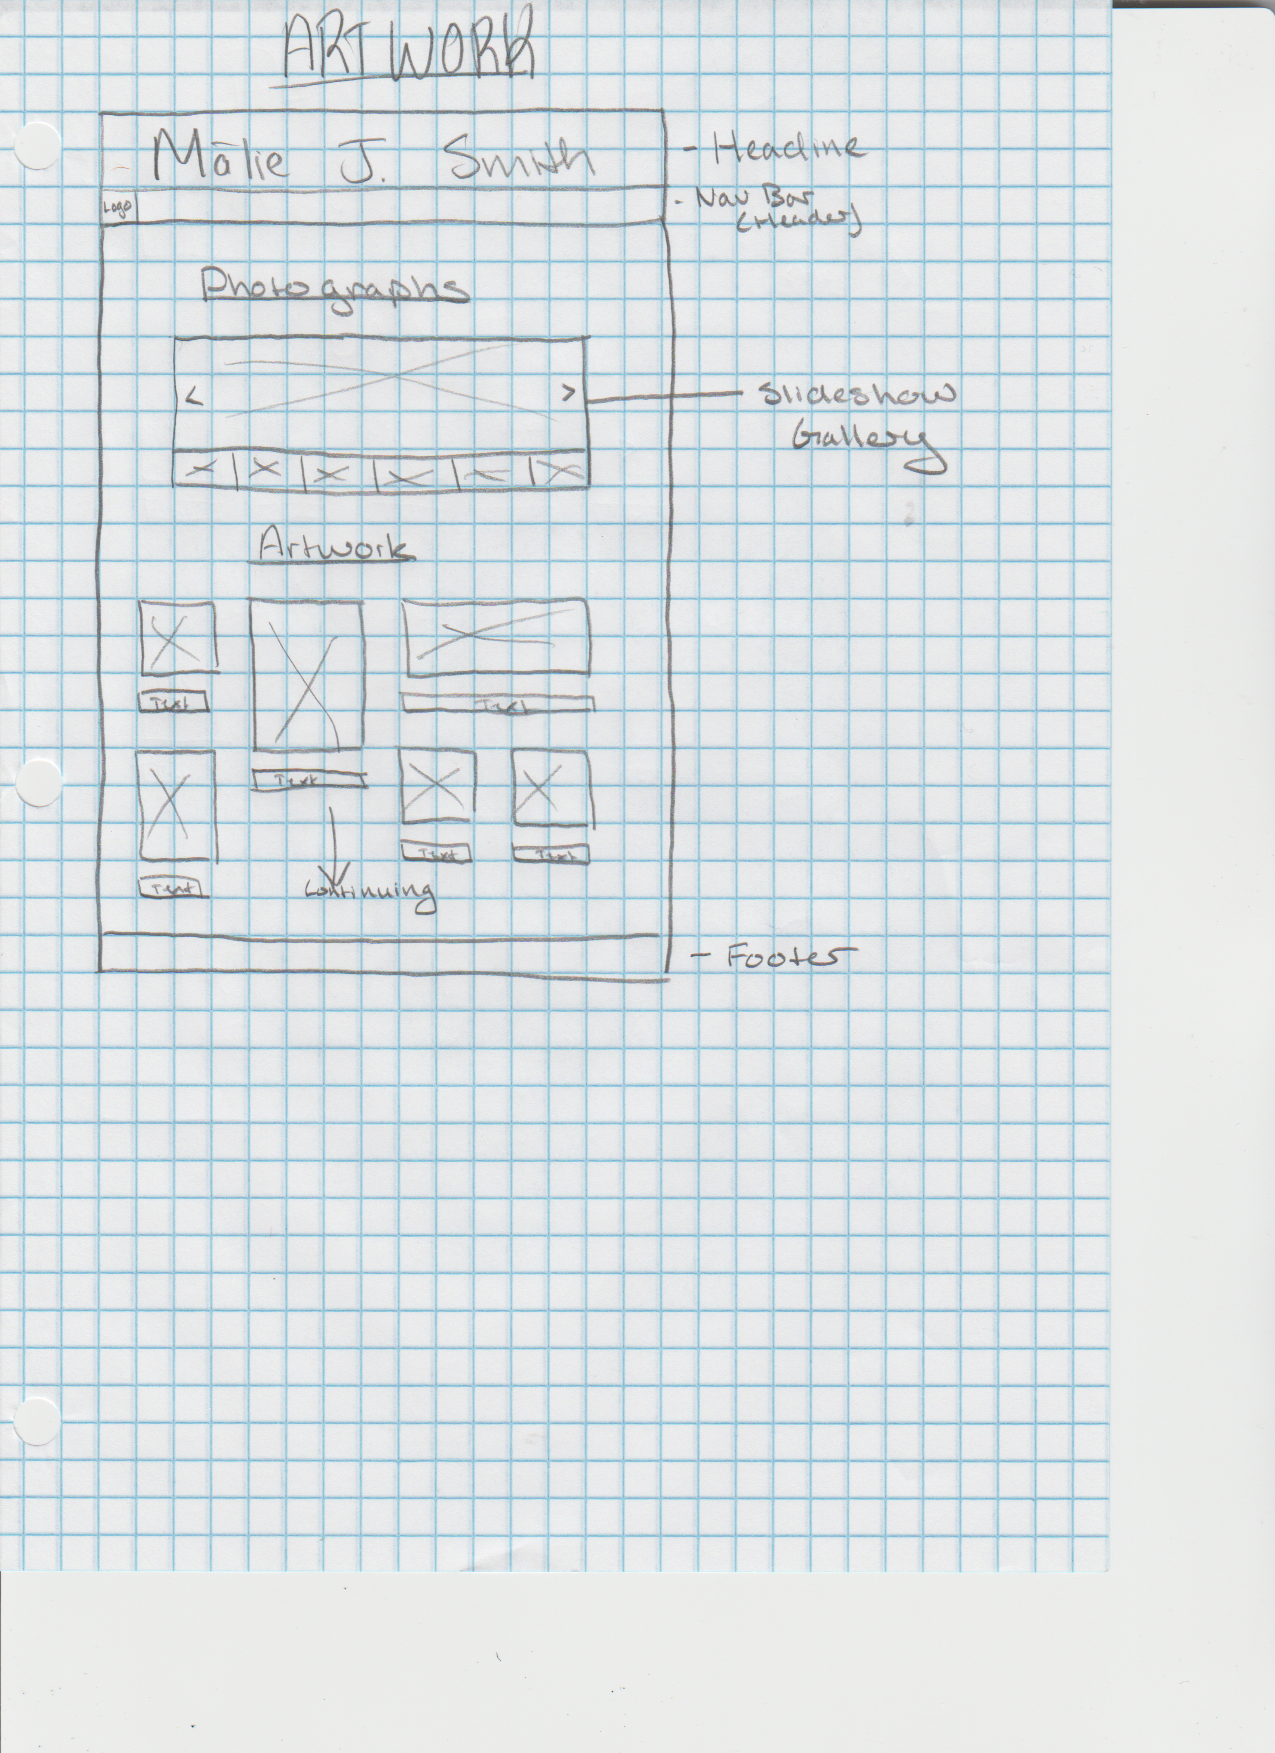 ARTWORK
Mālie J. Smith
- Headline
Logo
- Nav Bar
(Header)
Photographs
< >
- Slideshow
Gallery
Artwork
Text
Text
Text
Text
Text
Text
Continuing
- Footer